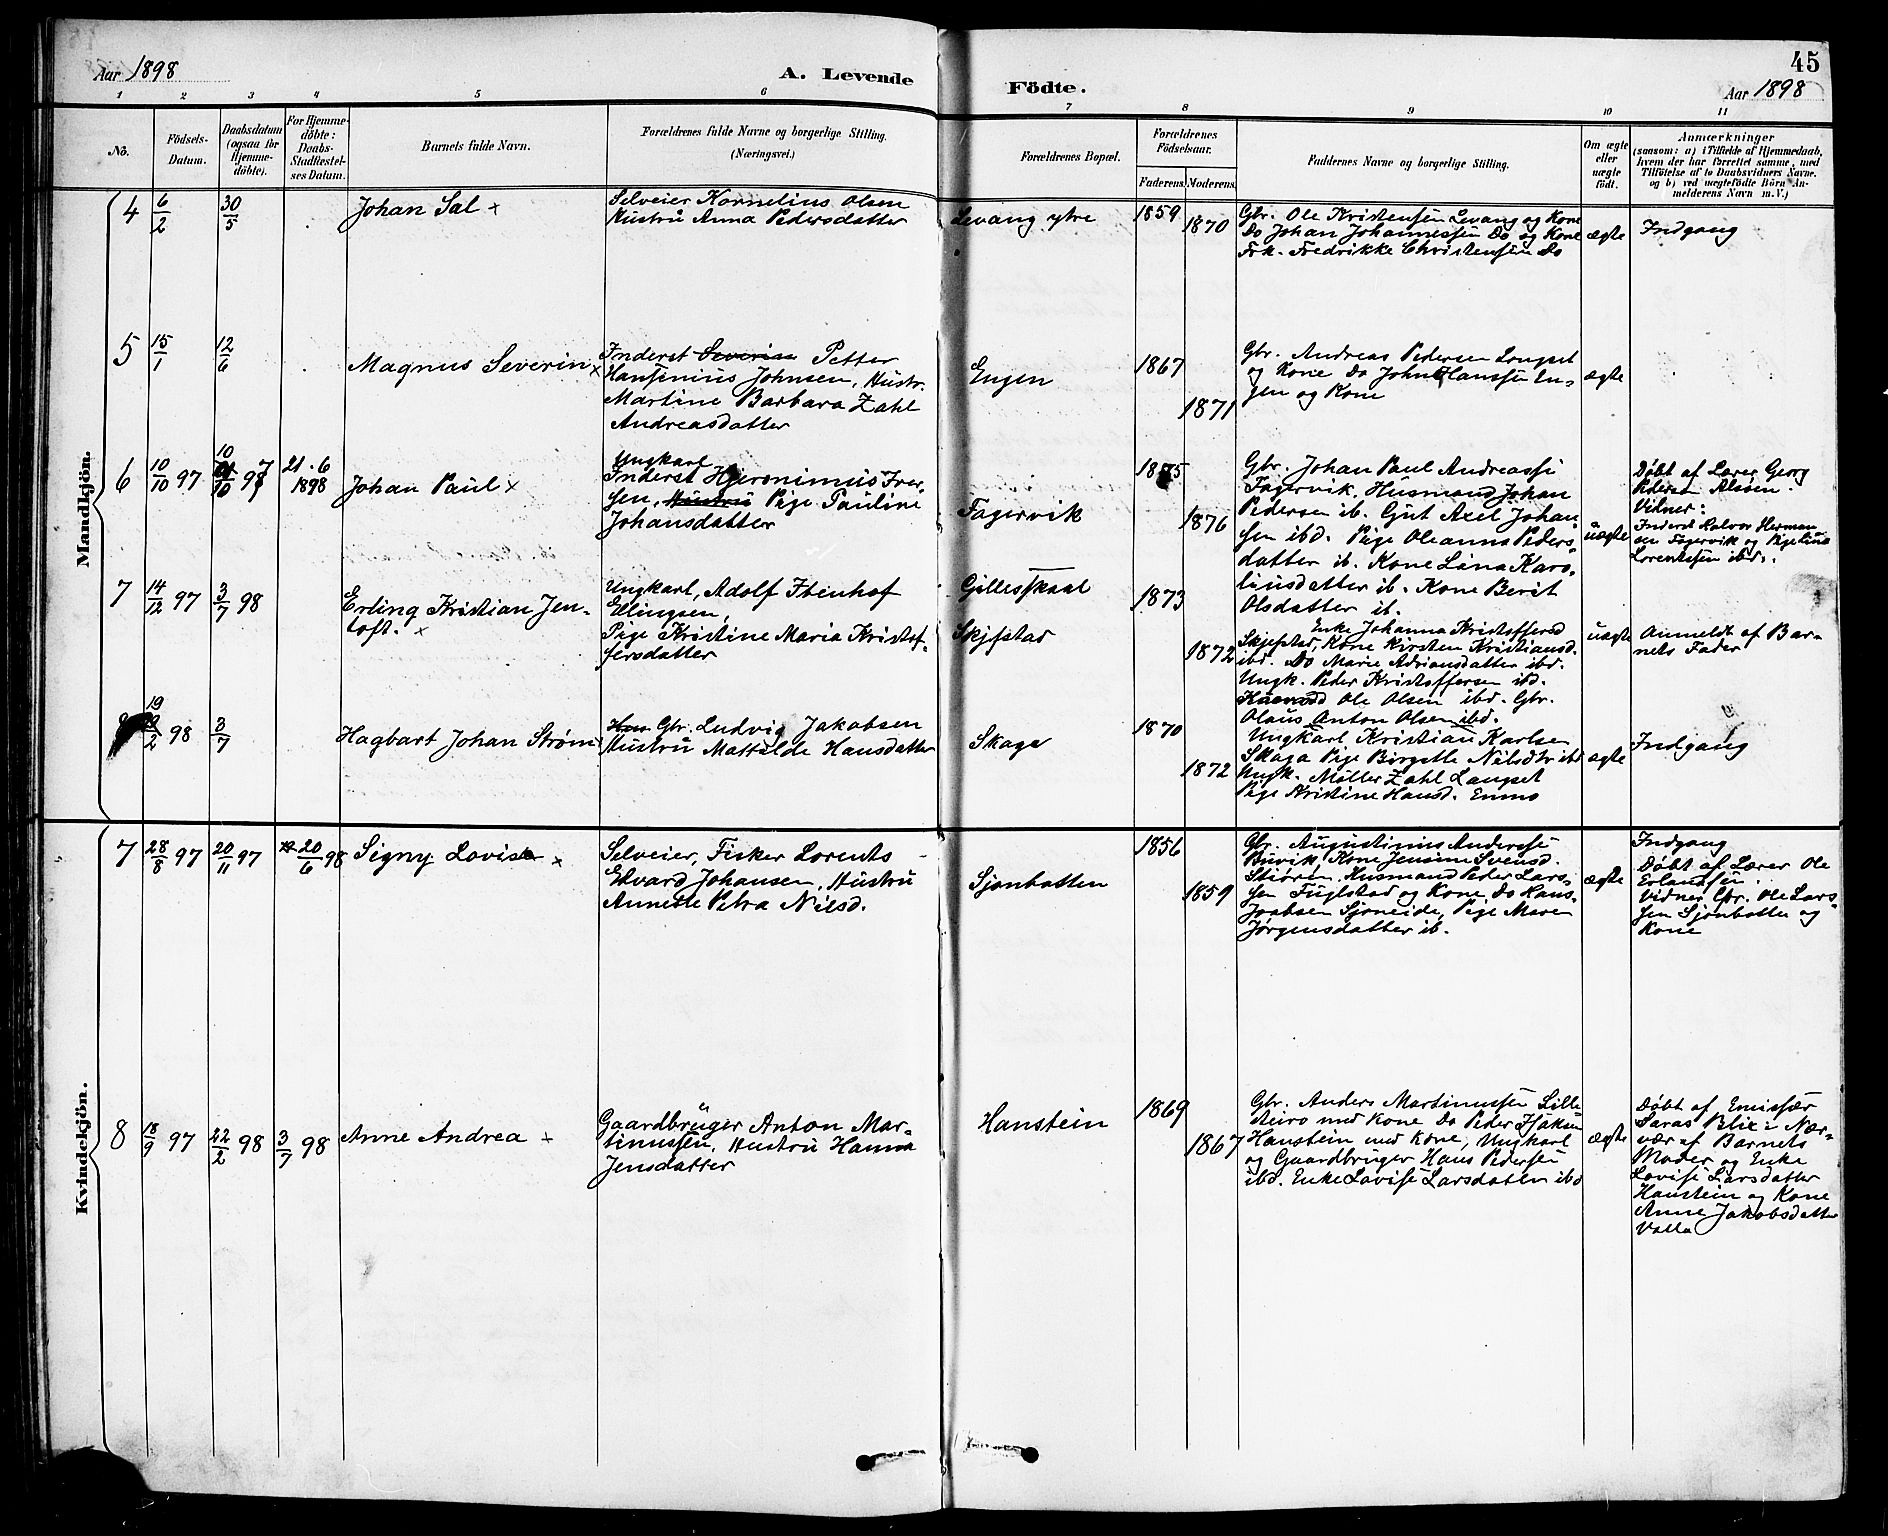 Aar 1898
A. Levende
Födte.
45
Aar 1898
1 2 3 4 5 6 7 8 9 10 11
No.
Födsels-
Datum.
Daabsdatum
(ogsaa for
Hjemme-
döbte).
For Hjemme-
döbte:
Daabs-
Stadfæstel-
ses Datum.
Barnets fulde Navn.
Forældrenes fulde Navne og borgerlige Stilling.
(Næringsvei.)
Forældrenes Bopæl.
Forældrenes
Födselsaar.
Faderens.
Moderens.
Faddernes Navne og borgerlige Stilling.
Om ægte
eller
uægte
födt.
Anmærkninger
(saasom: a) i Tilfælde af Hjemmedaab,
hvem der har forrettet samme, med
Tilföielse af to Daabsvidners Navne.
og b) ved uægtefödte Börn An-
melderens Navn m. V.)
Mandkjön.
4
6/2
30/5
Johan Sal x
Selveier Kornelius Olsen
Hustru Anna Pedersdatter
Levang ytre
1859
1870
Gbr. Ole Kristensen Levang og Kone
Do Johan Johannessen Do og Kone
Frk. Fredrikke Christensen Do
ægte
Indgang
5
15/1
12/6
Magnus Severin x
Inderst Severin Petter
Hansinius Johnsen, Hustr.
Martine Barbara Zahl
Andreasdatter
Engen
1867
1871
Gbr. Andreas Pedersen Langset
og Kone Do John Hanssen En-
gen og Kone
ægte
6
10/10 97
10 97
21.6
1898
Johan Paul x
Ungkarl
Inderst Hjeronimus Iver-
sen, Hustru Pige Pauline
Johansdatter
Fagervik
1875
1876
Gbr. Johan Paul Andreasse
Fagervik, Husmand Johan
Pedersen ib. Gut Axel Johan-
sen ibd. Pige Oleanna Peders-
datter ib. Kone Lina Karo-
liusdatter ib. Kone Berit
Olsdatter ib.
uægte
Döbt af Lærer Georg
Pedersen Alsöen.
Vidner:
Inderst Halvor Herman-
sen Fagervik og Pige Lina
Lorentsen ibd.
7
14/12 97
3/7 98
Erling Kristian Jen-
toft. x
Ungkarl, Adolf Ibenhof
Ellingsen,
Pige Kristine Maria Kristof-
fersdatter
Gillesskaal
Skjefstad
1873
1872
Enke Johanna Kristoffersd
Skjefstad, Kone Kirsten Kristiansd.
ibd. Do Marie Adriansdatter ibd.
Ungk. Peder Kristoffersen ibd.
Ole Olsen ibd. Gbr.
Olaus Anton Olsen ibd.
uægte
Anmeldt af Bar-
nets Fader
19/2 98
3/7
Hagbart Johan Strøm
Gbr. Ludvig Jakobsen
Hustru Mathilde Hansdatter
Skaga
1870
1872
Ungkarl Kristian Karlsen
Skaga Pige Birgitte Nilsdtr ibd
Ungk. Møller Zahl Langset
Pige Kristine Hansd. Enmo
ægte
Indgang
Kvindekjön.
7
28/8 97
20/11 97
20/6 98
Signy Lovise x
Selveier, Fisker Lorents
Edvard Johansen, Hustru
Annette Petra Nilsd.
Sjonbotten
1856
1859
Gbr. Augustinus Anderssen
Buvik, Kone Jensine Svensd.
Stiören, Husmand Peder Lars-
sen Fuglstad og Kone, Do Hans
Jacobsen Sjoneide, Pige Maren
Jørgensdatter ib.
ægte
Indgang
Döbt af Lærer Ole
Erlandsen.
Vidner Gbr. Ole Lars-
sen Sjonbotten og
Kone
8
18/9 97
22/2 98
3/7 98
Anne Andrea x
Gaardbruger Anton Mar-
tinussen, Hustru Hanna
Jensdatter
Hanstein
1869
1867
Gbr. Anders Martinussen Lille
Airo med Kone Do Peder Isaksen
Hanstein med Kone, Ungkarl
og Gaardbruger Hans Pedersen
ibd. Enke Lovise Larsdatter ibd
ægte
Döbt af Emissær
Saras Blix i Nær-
vær af Barnets
Moder og Enke
Lovise Larsdatter
Hanstein og Kone
Anne Jakobsdatter
Valla